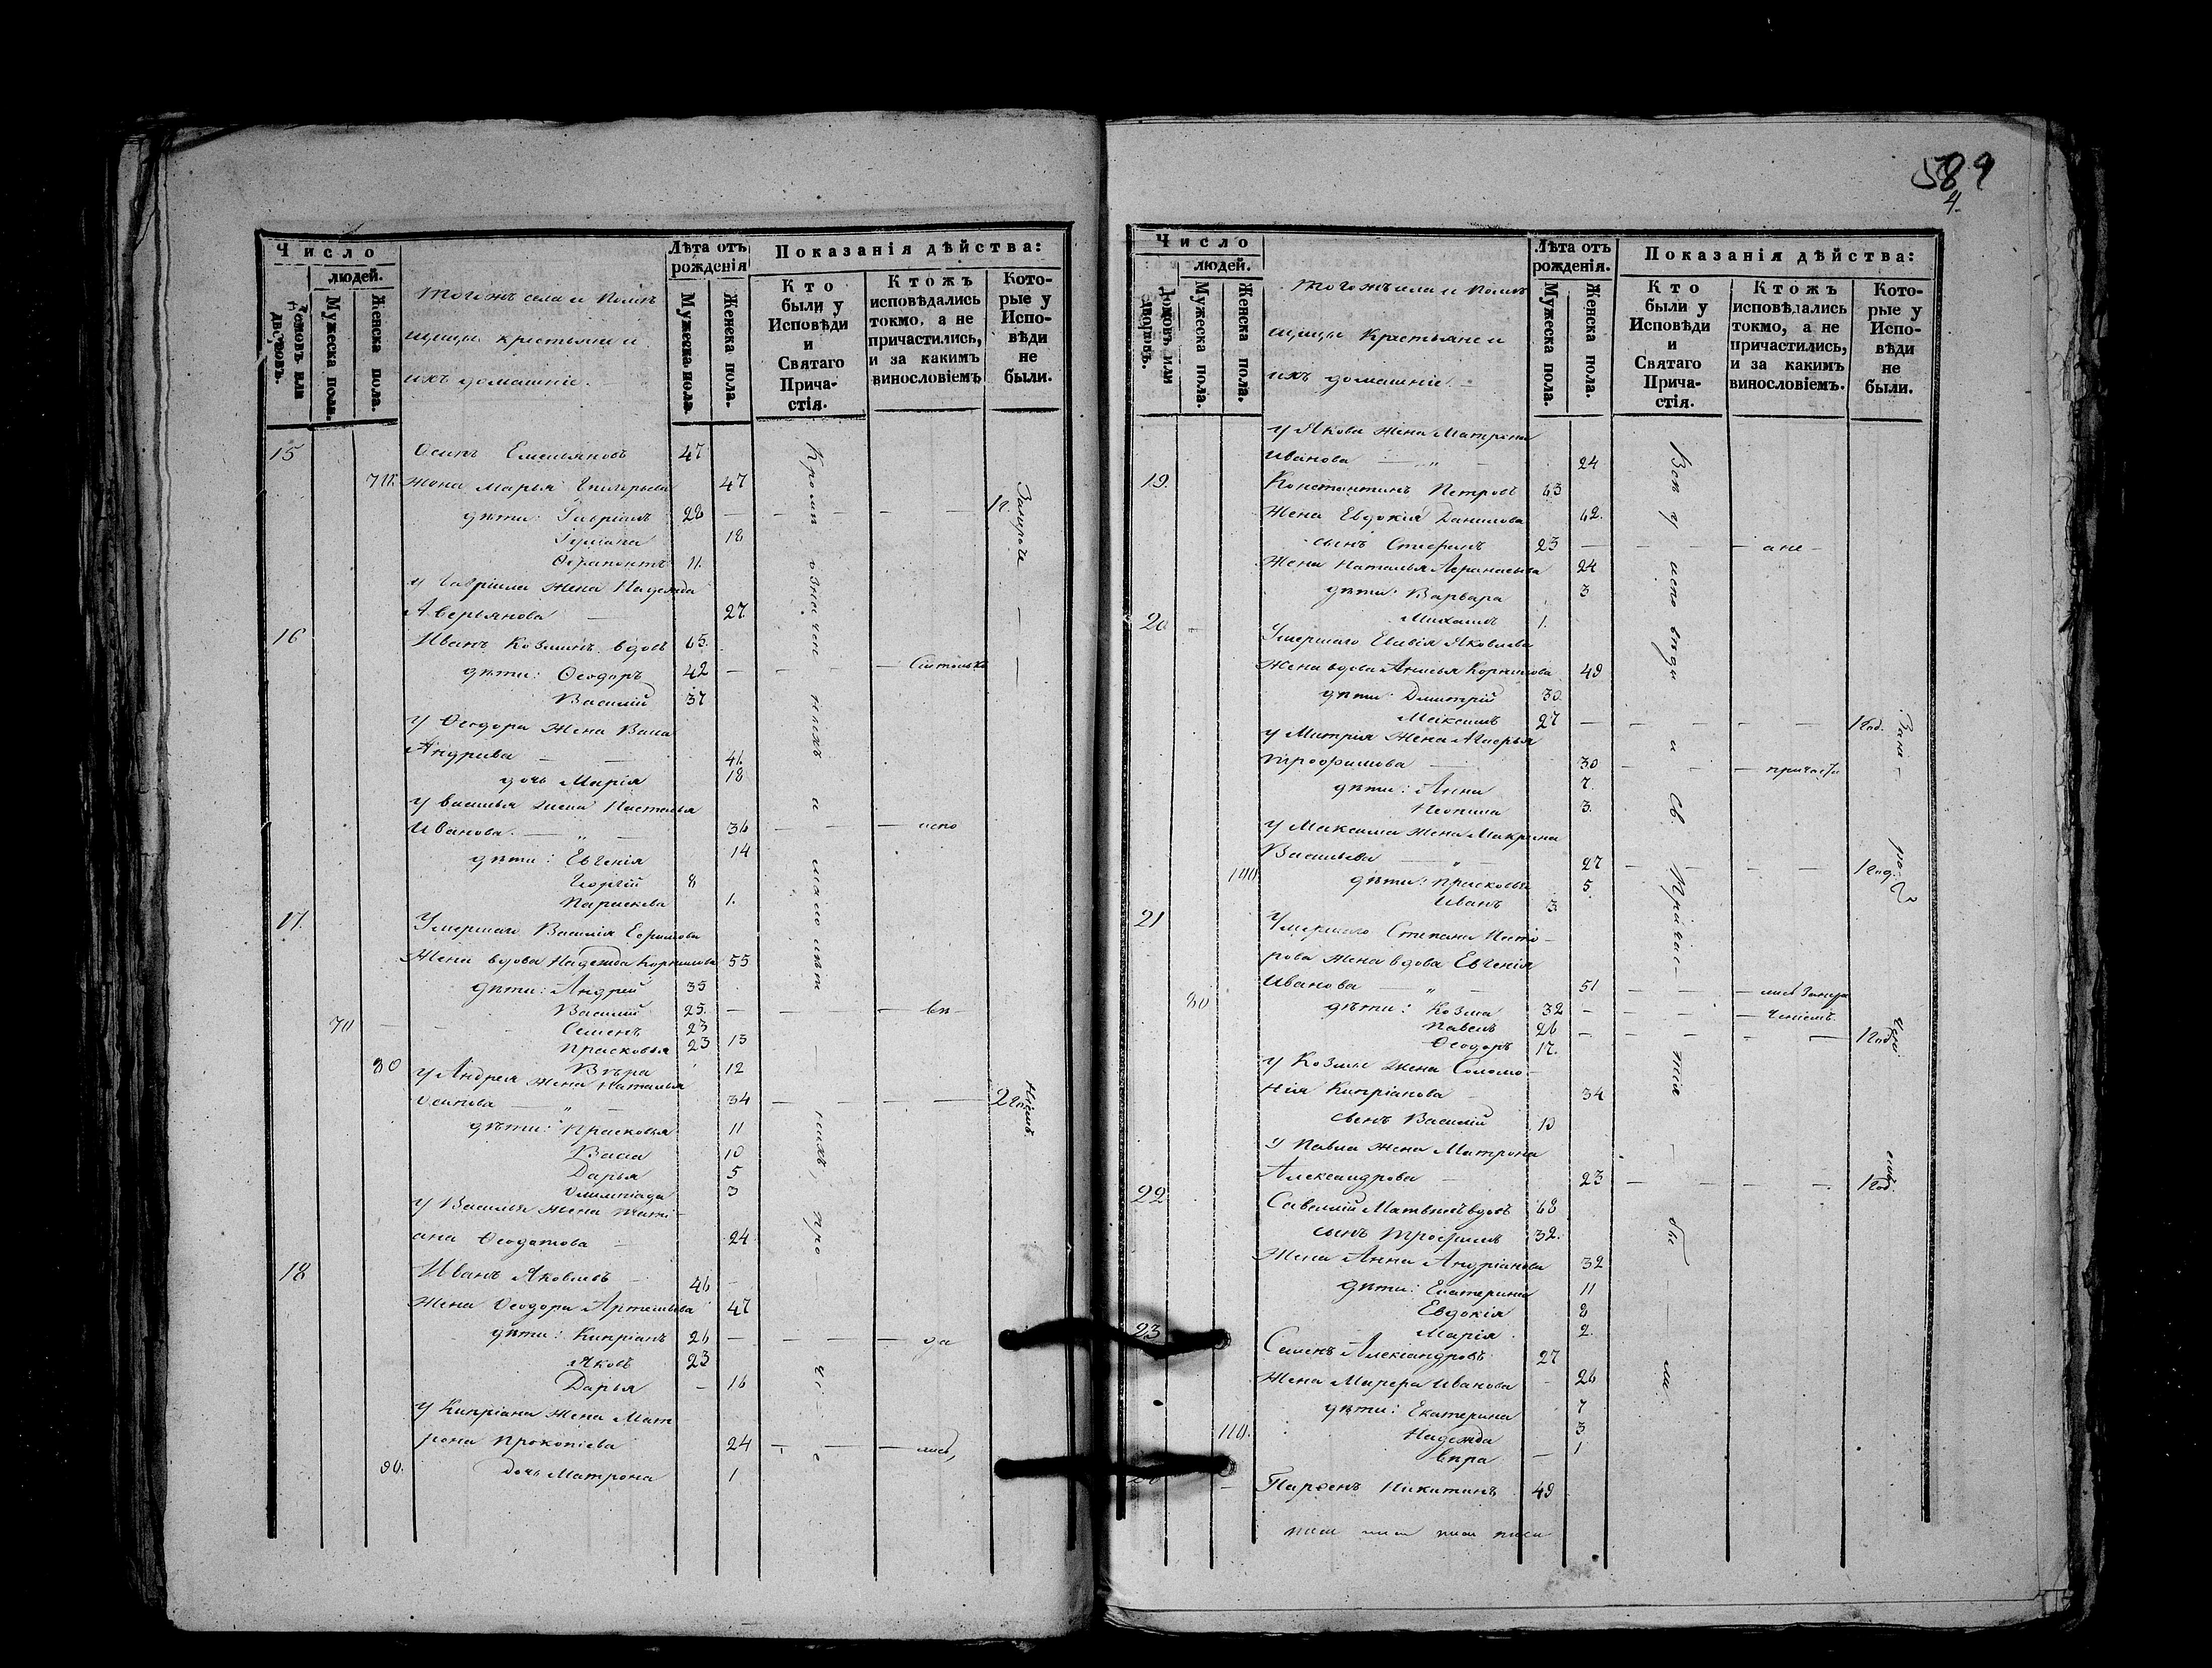 Число
людей.
Домовъ или дворовъ.
Мужеска пола.
Женска пола.
Тогожъ села и помѣ-
щицы крестьяне и
ихъ домашніе.
Лѣта отъ рожденія
Мужеска пола.
Женска пола.
Показанія дѣйства:
Кто были у Исповѣди и Святаго Прича-стія.
Ктожъ исповѣдались токмо, а не причастились, и за какимъ винословіемъ
Кото-рые у Испо-вѣди не были.
15 Осипъ Емельяновъ 47
Жена Марья 47
дѣти: Гавріилъ 28
18
11.
У Гавріила жена Надежда
Аверьянова 27
16 Иванъ Козминъ вдовъ 65.
дѣти: Ѳеодоръ 42
Василій 37
У Ѳеодора жена Васса
Андреева 41.
дочь Марія 18
У Василья жена Настасья
Иванова 36 испо
дѣти: Евгенія 14
Георгій 8
Параскева 1.
17. Умершаго Василія Ефимова
Жена вдова Надежда Корнилова 55
дѣти: Андрей 35
Василій 25. вѣ
70 Семенъ 23
Прасковья 23 15
80 Вѣра 12
У Андрея жена Наталья
Осипова 34 2
дѣти: Прасковья 11
Васса 10
Дарья 5
Олимпіада 3
У Василья жена Тати-
ана Ѳеодотова 24
18 Иванъ Яковлевъ 46
Жена Ѳеодора Артемьева 47
дѣти: Кипріанъ 26 да
Яковъ 23
Дарья 16
У Кипріана жена Мат
рона Прокопіева 24 лись,
90. дочь Матрона 1
Кромѣ означен ныхъ и малолѣт нихъ, про чі е
589
4.
Число
людей.
Домовъ или дворовъ.
Мужеска пола.
Женска пола.
Тогожъ села и помѣ
щицы крестьяне и
ихъ домашніе.
Лѣта отъ рожденія.
Мужеска пола.
Женска пола.
Показанія дѣйства:
Кто были у Исповѣди и Святаго Прича-стія.
Ктожъ исповѣдались токмо, а не причастились, и за какимъ винословіемъ.
Кото-рые у Испо-вѣди не были.
У Якова жена Матрона
Иванова 24
19. Константинъ Петровъ 63
Жена Евдокія Данилова 62.
сынъ Стефанъ 23 а не
Жена Наталья Аѳанасьева 24
дѣти: Варвара 3
Михаилъ 1.
20 Умершаго Яковлева
Жена вдова Анисья Корнилова 49
дѣти: Дмитрій 30.
Максимъ 27 1 год.
У Митрія жена
Трофимова 30 причасти
дѣти: Анна 7.
3.
У Максима жена Макрина
Васильева 27 1 год.
100 дѣти: Прасковья 5
Иванъ 3
21 Умершаго Степана
рова жена вдова Евгенія
Иванова 51
80 дѣти: Козма 32
Павелъ 26
Ѳеодоръ 17. 1 год
У Козмы жена Соломо-
нія Кипріанова 34
сынъ Василій 10
У Павла жена Матрона
Александрова 23 1 год.
22 Савелій вдовъ 68
сынъ Трофимъ 32.
Жена Анна Андріанова 32
дѣти: Екатерина 11
Евдокія 8
Марія 2.
23 Семенъ Александровъ 27
Жена Иванова 26
дѣти: Екатерина 7
110. Надежда 3
Вѣра 1
Парѳенъ Никитинъ 49
Всѣ у испо вѣди и Св. Причас- тія бы ли.